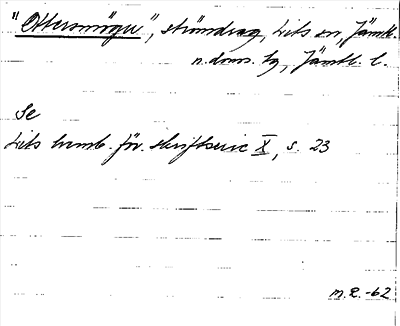 "Ottersmögen", strömdrag, Lits sn, Jämtl.
n. doms. hg, Jämtl. l.
Se
Lits hemb. för. skriftserie X, s. 23
M.E. -62